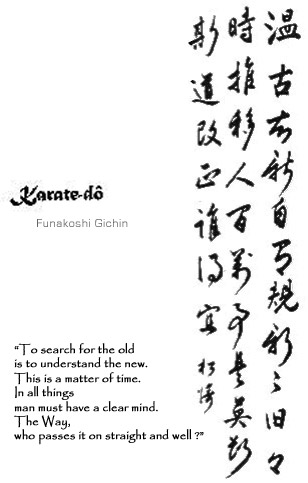 温古知新自有規新々旧々
時推移人百萬事是英断
斯道改正誰得宜 松濤
Karate-dô
Funakoshi Gichin
"To search for the old
is to understand the new.
This is a matter of time.
In all things
man must have a clear mind.
The Way,
who passes it on straight and well ?"